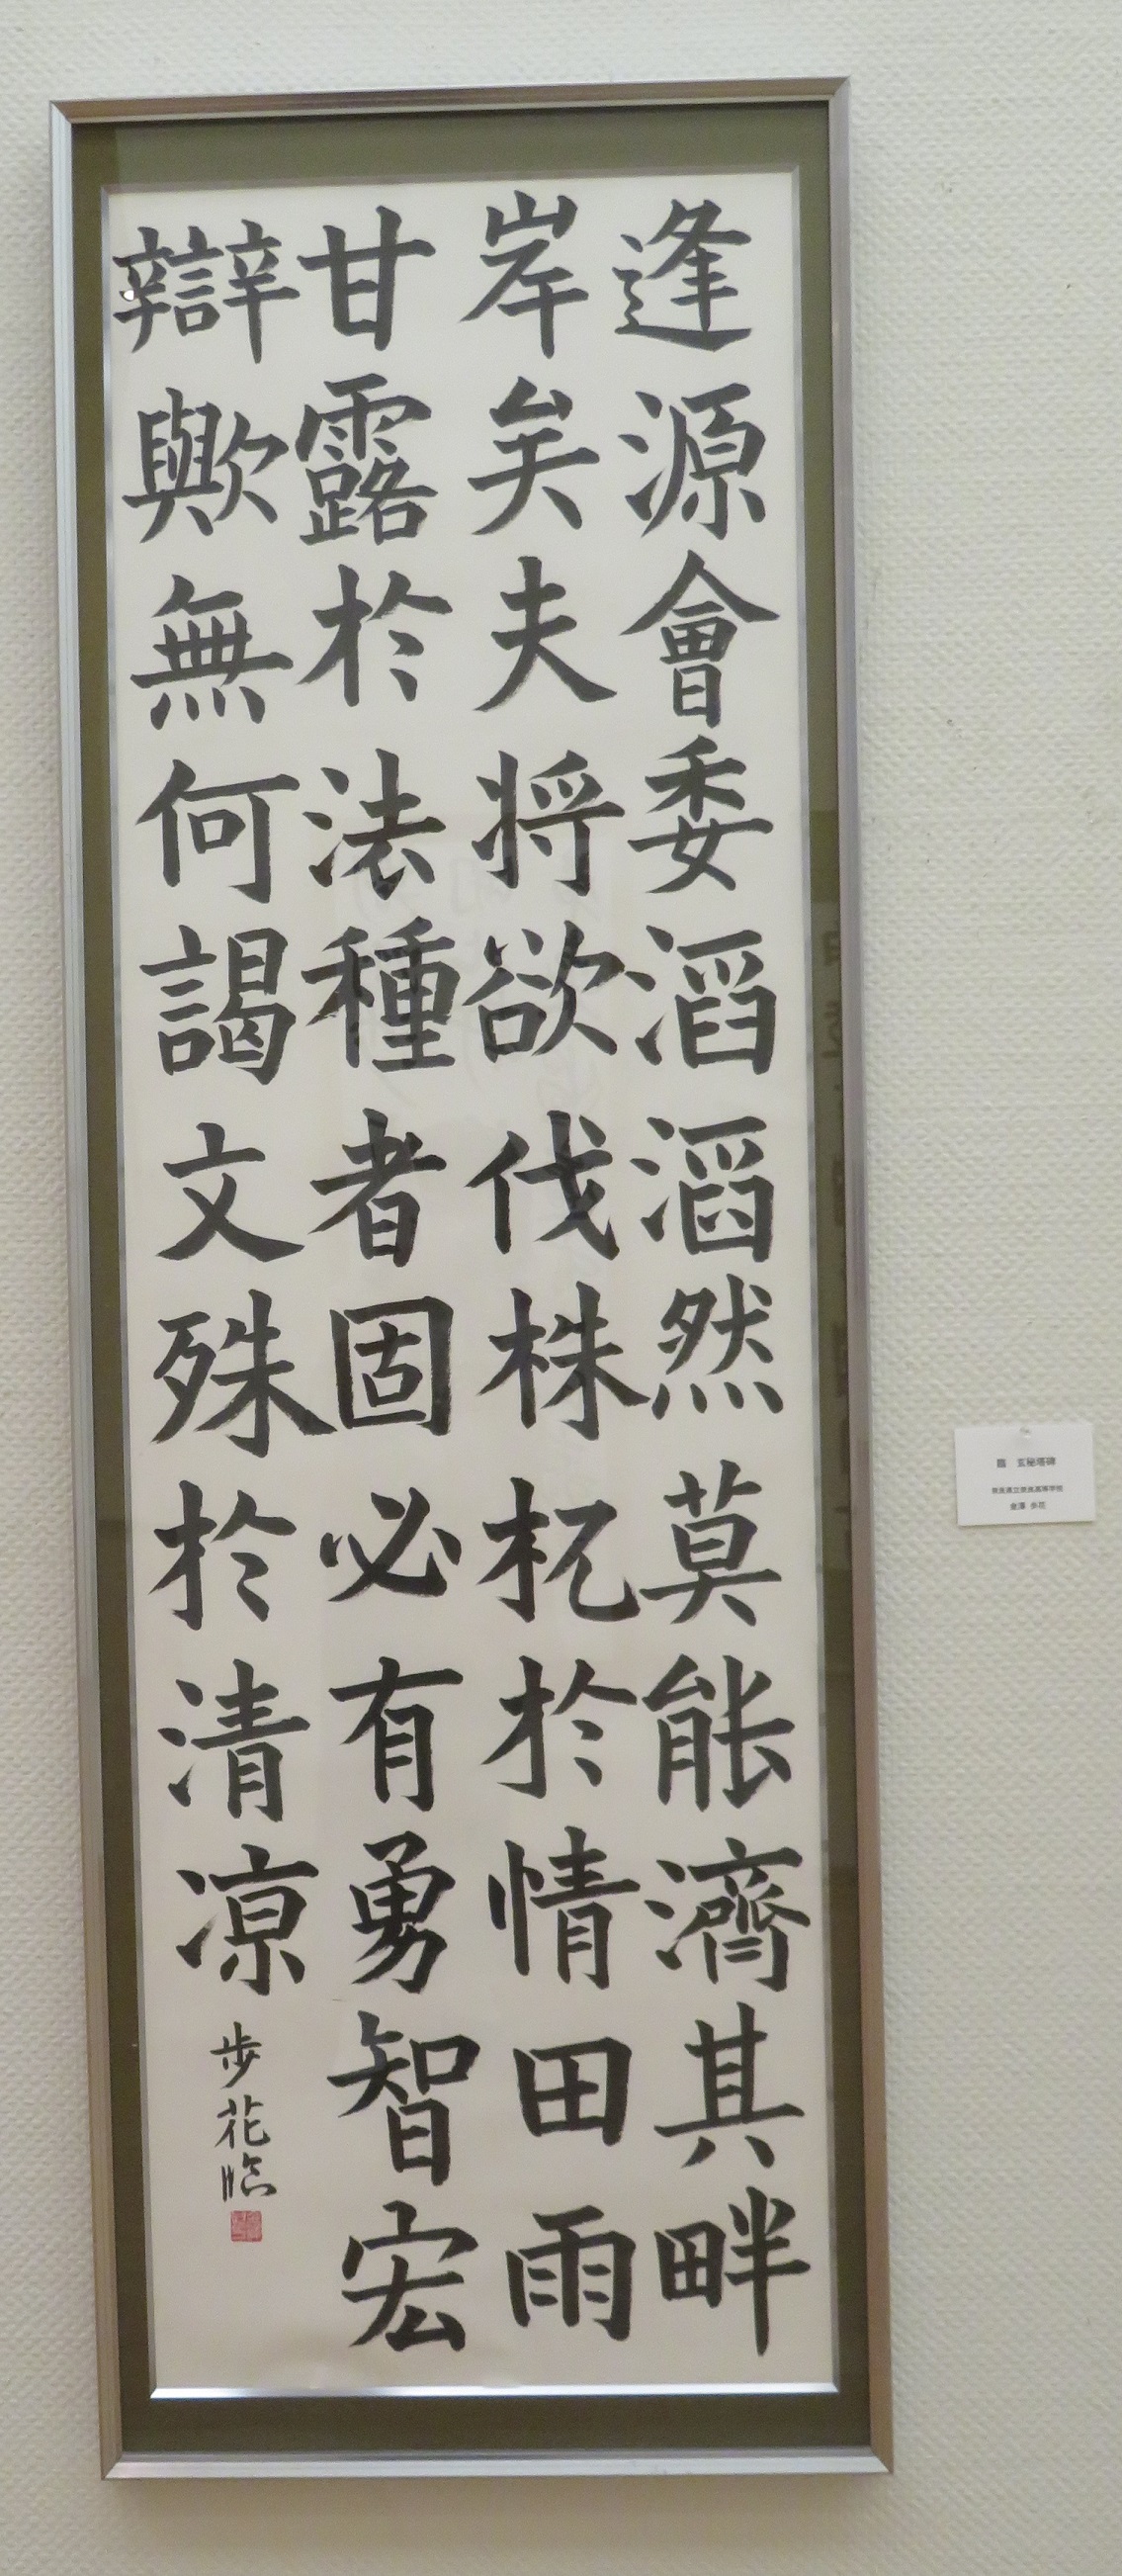 逢源會委滔滔然莫能濟其畔
岸矣夫将欲伐株杌於情田雨
甘露於法種者固必有勇智宏
辯歟無何謁文殊於清凉
歩花臨
臨 玄秘塔碑